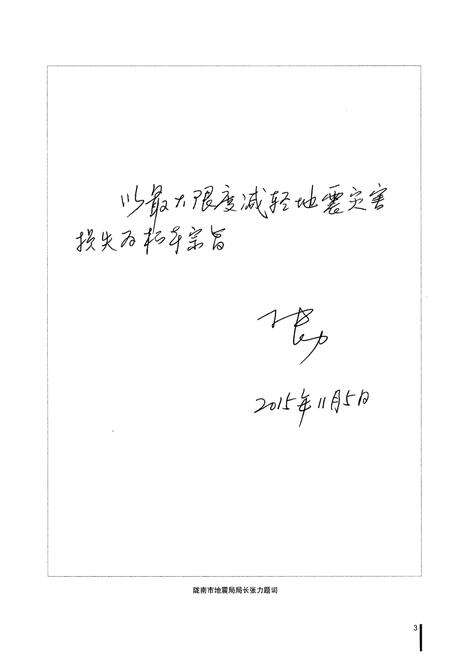 以最大限度减轻地震灾害
损失为根本宗旨
张力
2015年11月5日
陇南市地震局局长张力题词
3